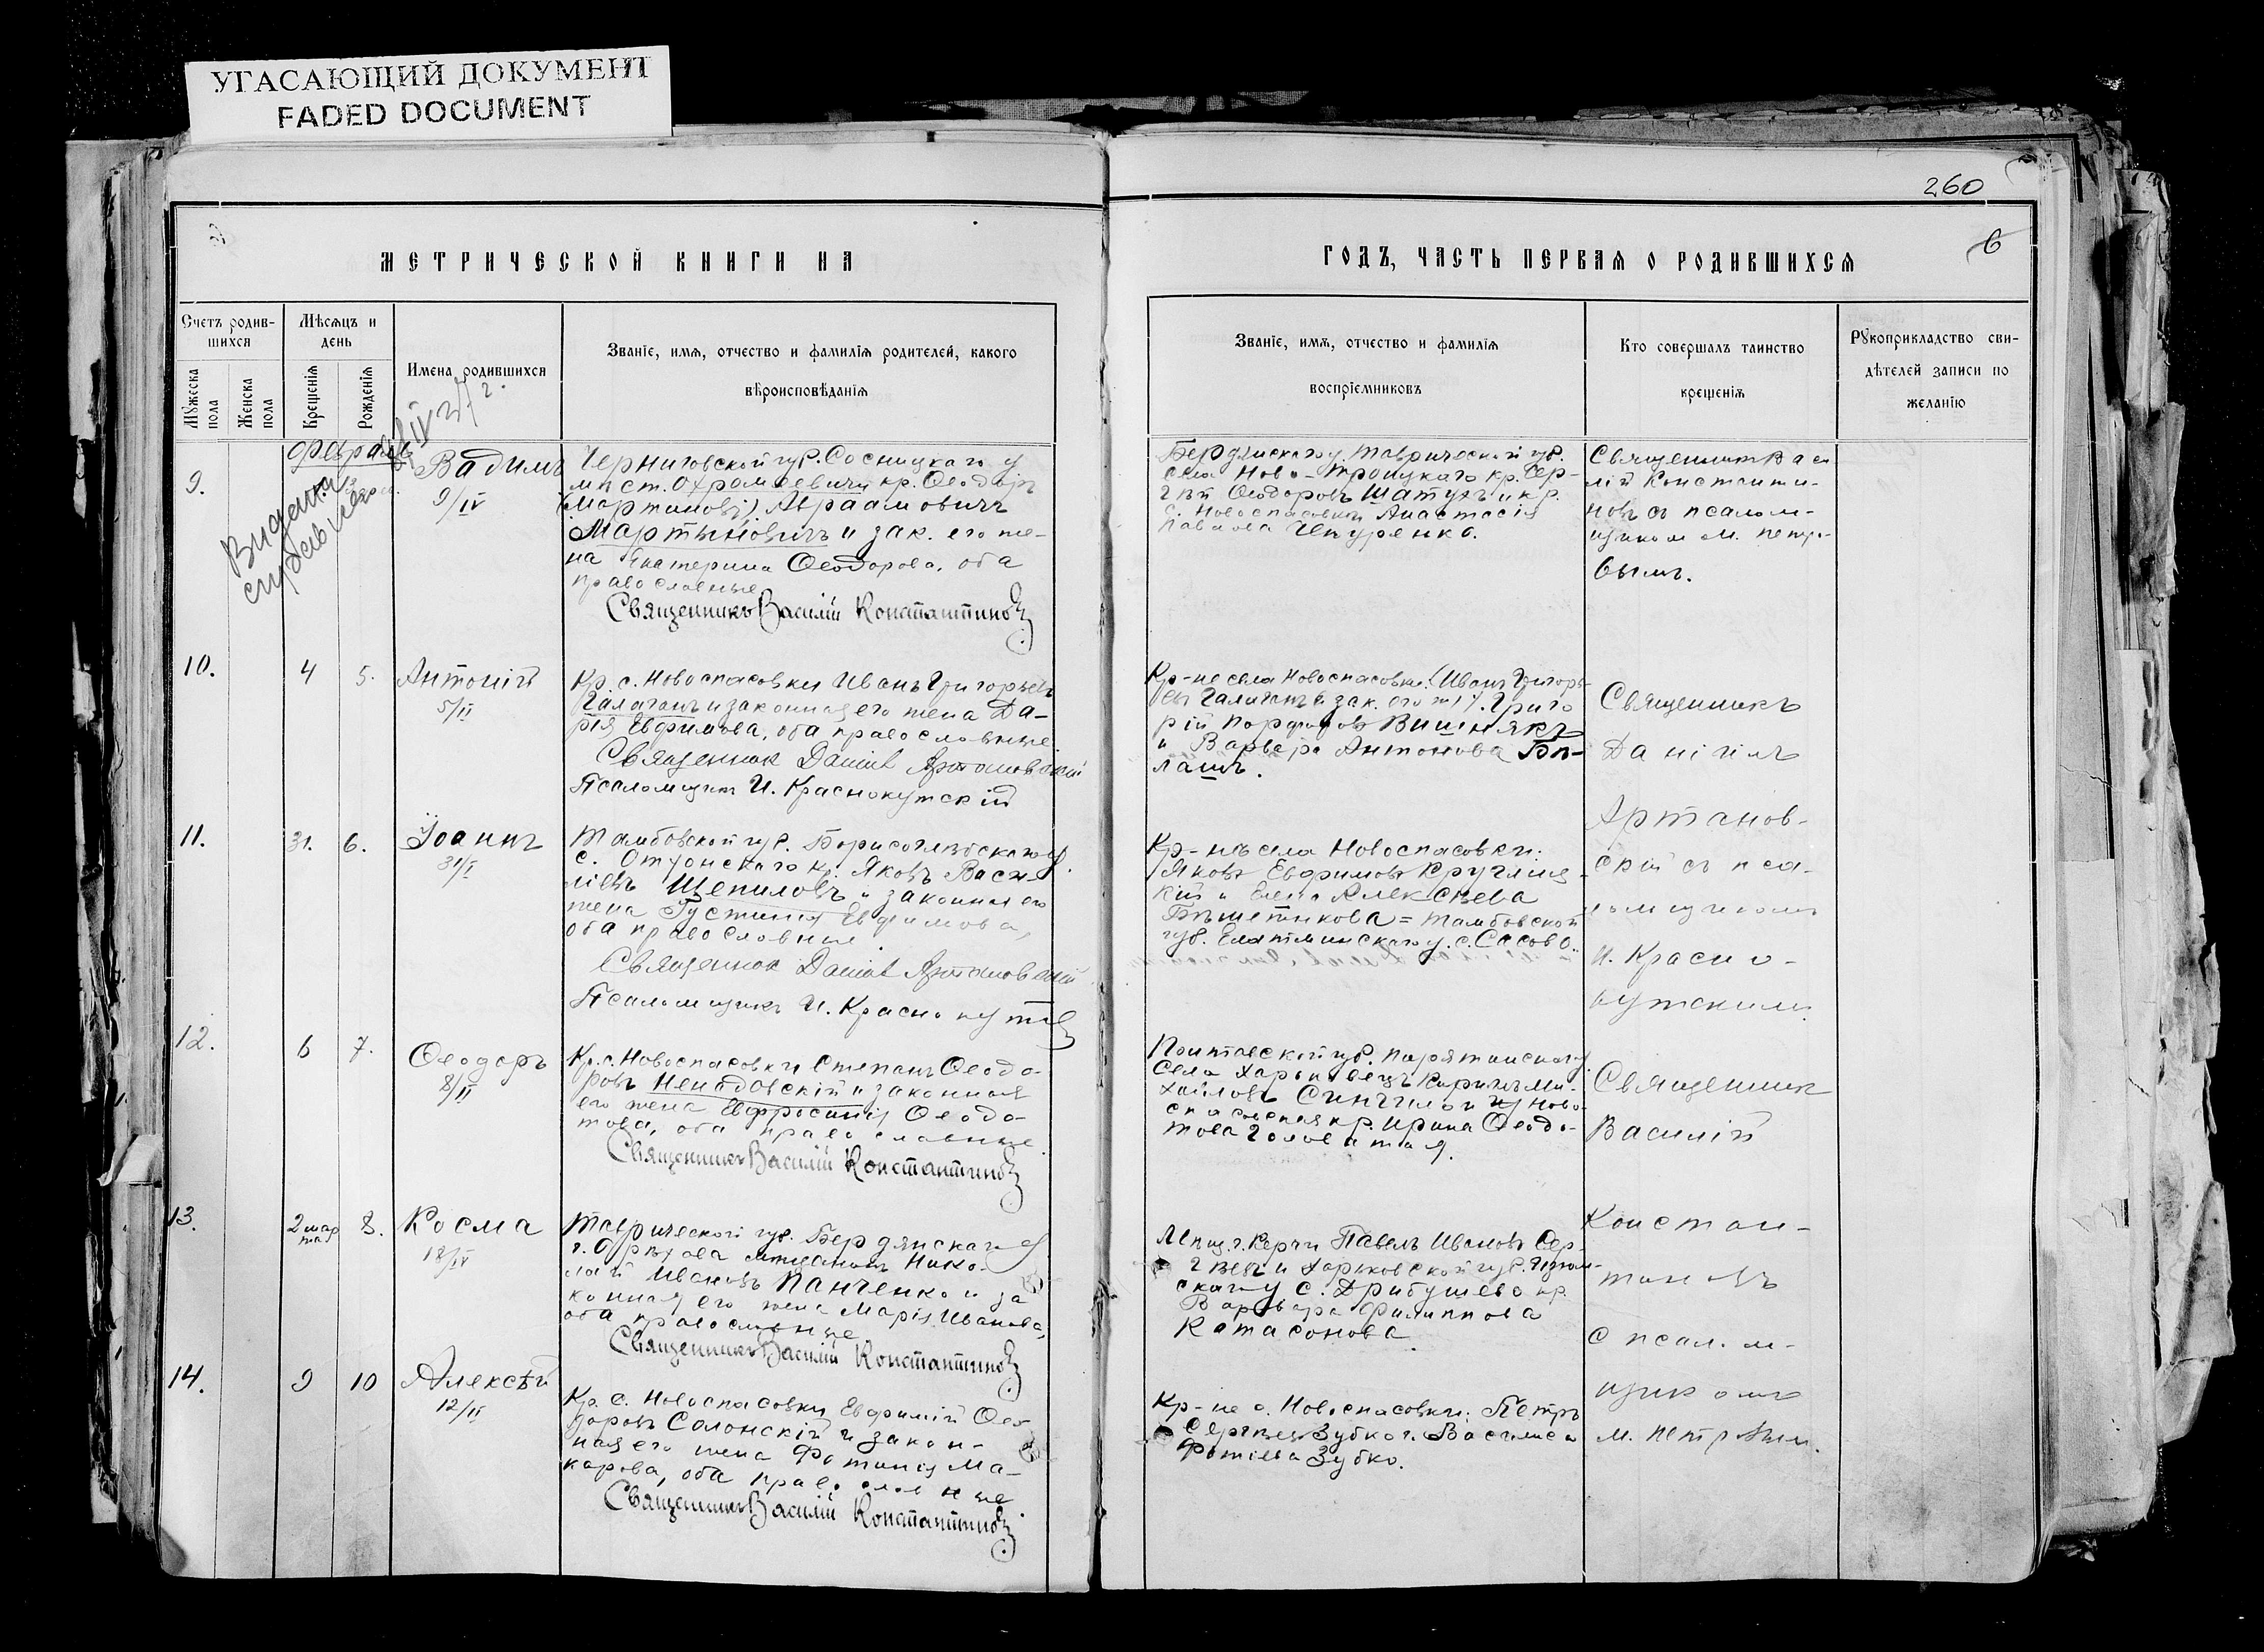 УГАСАЮЩИЙ ДОКУМЕНТ
FADED DOCUMENT
260
6
МЕТРИЧЕСКОЙ КНИГИ НА
ГОДЪ, ЧАСТЬ ПЕРВАЯ О РОДИВШИХСЯ
Счетъ родив-
шихся
Мужеска
пола
Женска
пола
Мѣсяцъ и
день
Крещенія
Рожденія
Имена родившихся
Званіе, имя, отчество и фамилія родителей, какого
вѣроисповѣданія
Званіе, имя, отчество и фамилія
воспріемниковъ
Кто совершалъ таинство
крещенія
Рукоприкладство сви-
дѣтелей записи по
желанію
Февраль
9.
Вадимъ
9/IV
Черниговской губ. Сосницкаго у
мѣст. Охрамѣевичи кр. Ѳеодоръ
(Мартиновъ) Авраамовичъ
Мартыновичъ и зак. его же-
на Екатерина Ѳеодорова, оба
православные
Священникъ Василій Константиновъ
Бердянскаго у. Таврической губ.
села Ново-Троицкаго кр. Сер-
гѣй Ѳеодоровъ Шатухъ и кр.
с. Новоспасовки Анастасія
Павлова Чепуренко.
Священникъ Васи
лій Константи-
новъ съ псалом-
щикомъ М. Петро-
вымъ.
10.
4
5.
Антоній
5/II
Кр. с. Новоспасовки Иванъ Григорьевъ
Галаганъ и законная его жена Да-
рія Евфимова, оба православные
Священник Даніил Артановскій
Псаломщик И. Краснокутскій
Кр-не села Новоспасовки: (Иванъ Григорь-
евъ Галаганъ и зак. его ж). Григо
рій Порфировъ Вишнякъ
и Варвара Антонова Бѣ-
лашъ.
Священникъ
Даніилъ
Артанов-
скій съ пса-
ломщикомъ
И. Красно-
кутскимъ.
11.
31.
6.
Іоаннъ
31/I
Тамбовской губ. Борисоглѣбскаго у.
кр. Яковъ Васи-
ліевъ Щепиловъ и законная его
жена Іустинія Евфимова,
оба православные.
Священник Даніил Артановскій
Псаломщикъ И. Краснокутскій
Кр-нъ села Новоспасовки:
Яковъ Евфимовъ Круглиц-
кій и Елена Алексѣева
Тамбовской
губ. Елатминскаго у. с. Сасово.
12.
6
7.
Ѳеодоръ
8/II
Кр. с. Новоспасовки Степанъ Ѳеодо-
ровъ Ненадовскій и законная
его жена Евфросинія Ѳеодо-
това, оба православные
Священникъ Василій Константиновъ
Полтавской губ. Пирятинскаго у.
села Харьковецъ Кириллъ Ми-
хайловъ Синчило и Ново-
спасовская кр. Ирина Ѳеодо-
това Головатая.
Священник
Василій
Констан-
тиновъ
с псалом-
щикомъ
М. Петровым.
13.
2 мар
та
8.
Косма
18/IV
Таврической губ. Бердянскаго у
г. Орѣхова мѣщанинъ Нико-
лай Ивановъ Панченко и за
конная его жена Марія Иванова,
оба православные.
Священникъ Василій Константиновъ
Мѣщ. г. Керчи Павелъ Ивановъ Сер-
гѣевъ и Харьковской губ. Изюм-
скаго у с. Дрибушево кр.
Варвара Филиппова
Катасонова.
14.
9
10
Алексѣй
12/II
Кр. с. Новоспасовки Евфимій Ѳео
доровъ Салонскій и закон-
ная его жена Фотинія Ма-
карова, оба православные.
Священникъ Василій Константиновъ
Кр-не с. Новоспасовки: Петръ
Сергѣевъ Зубко и Василиса
Фотіева Зубко.